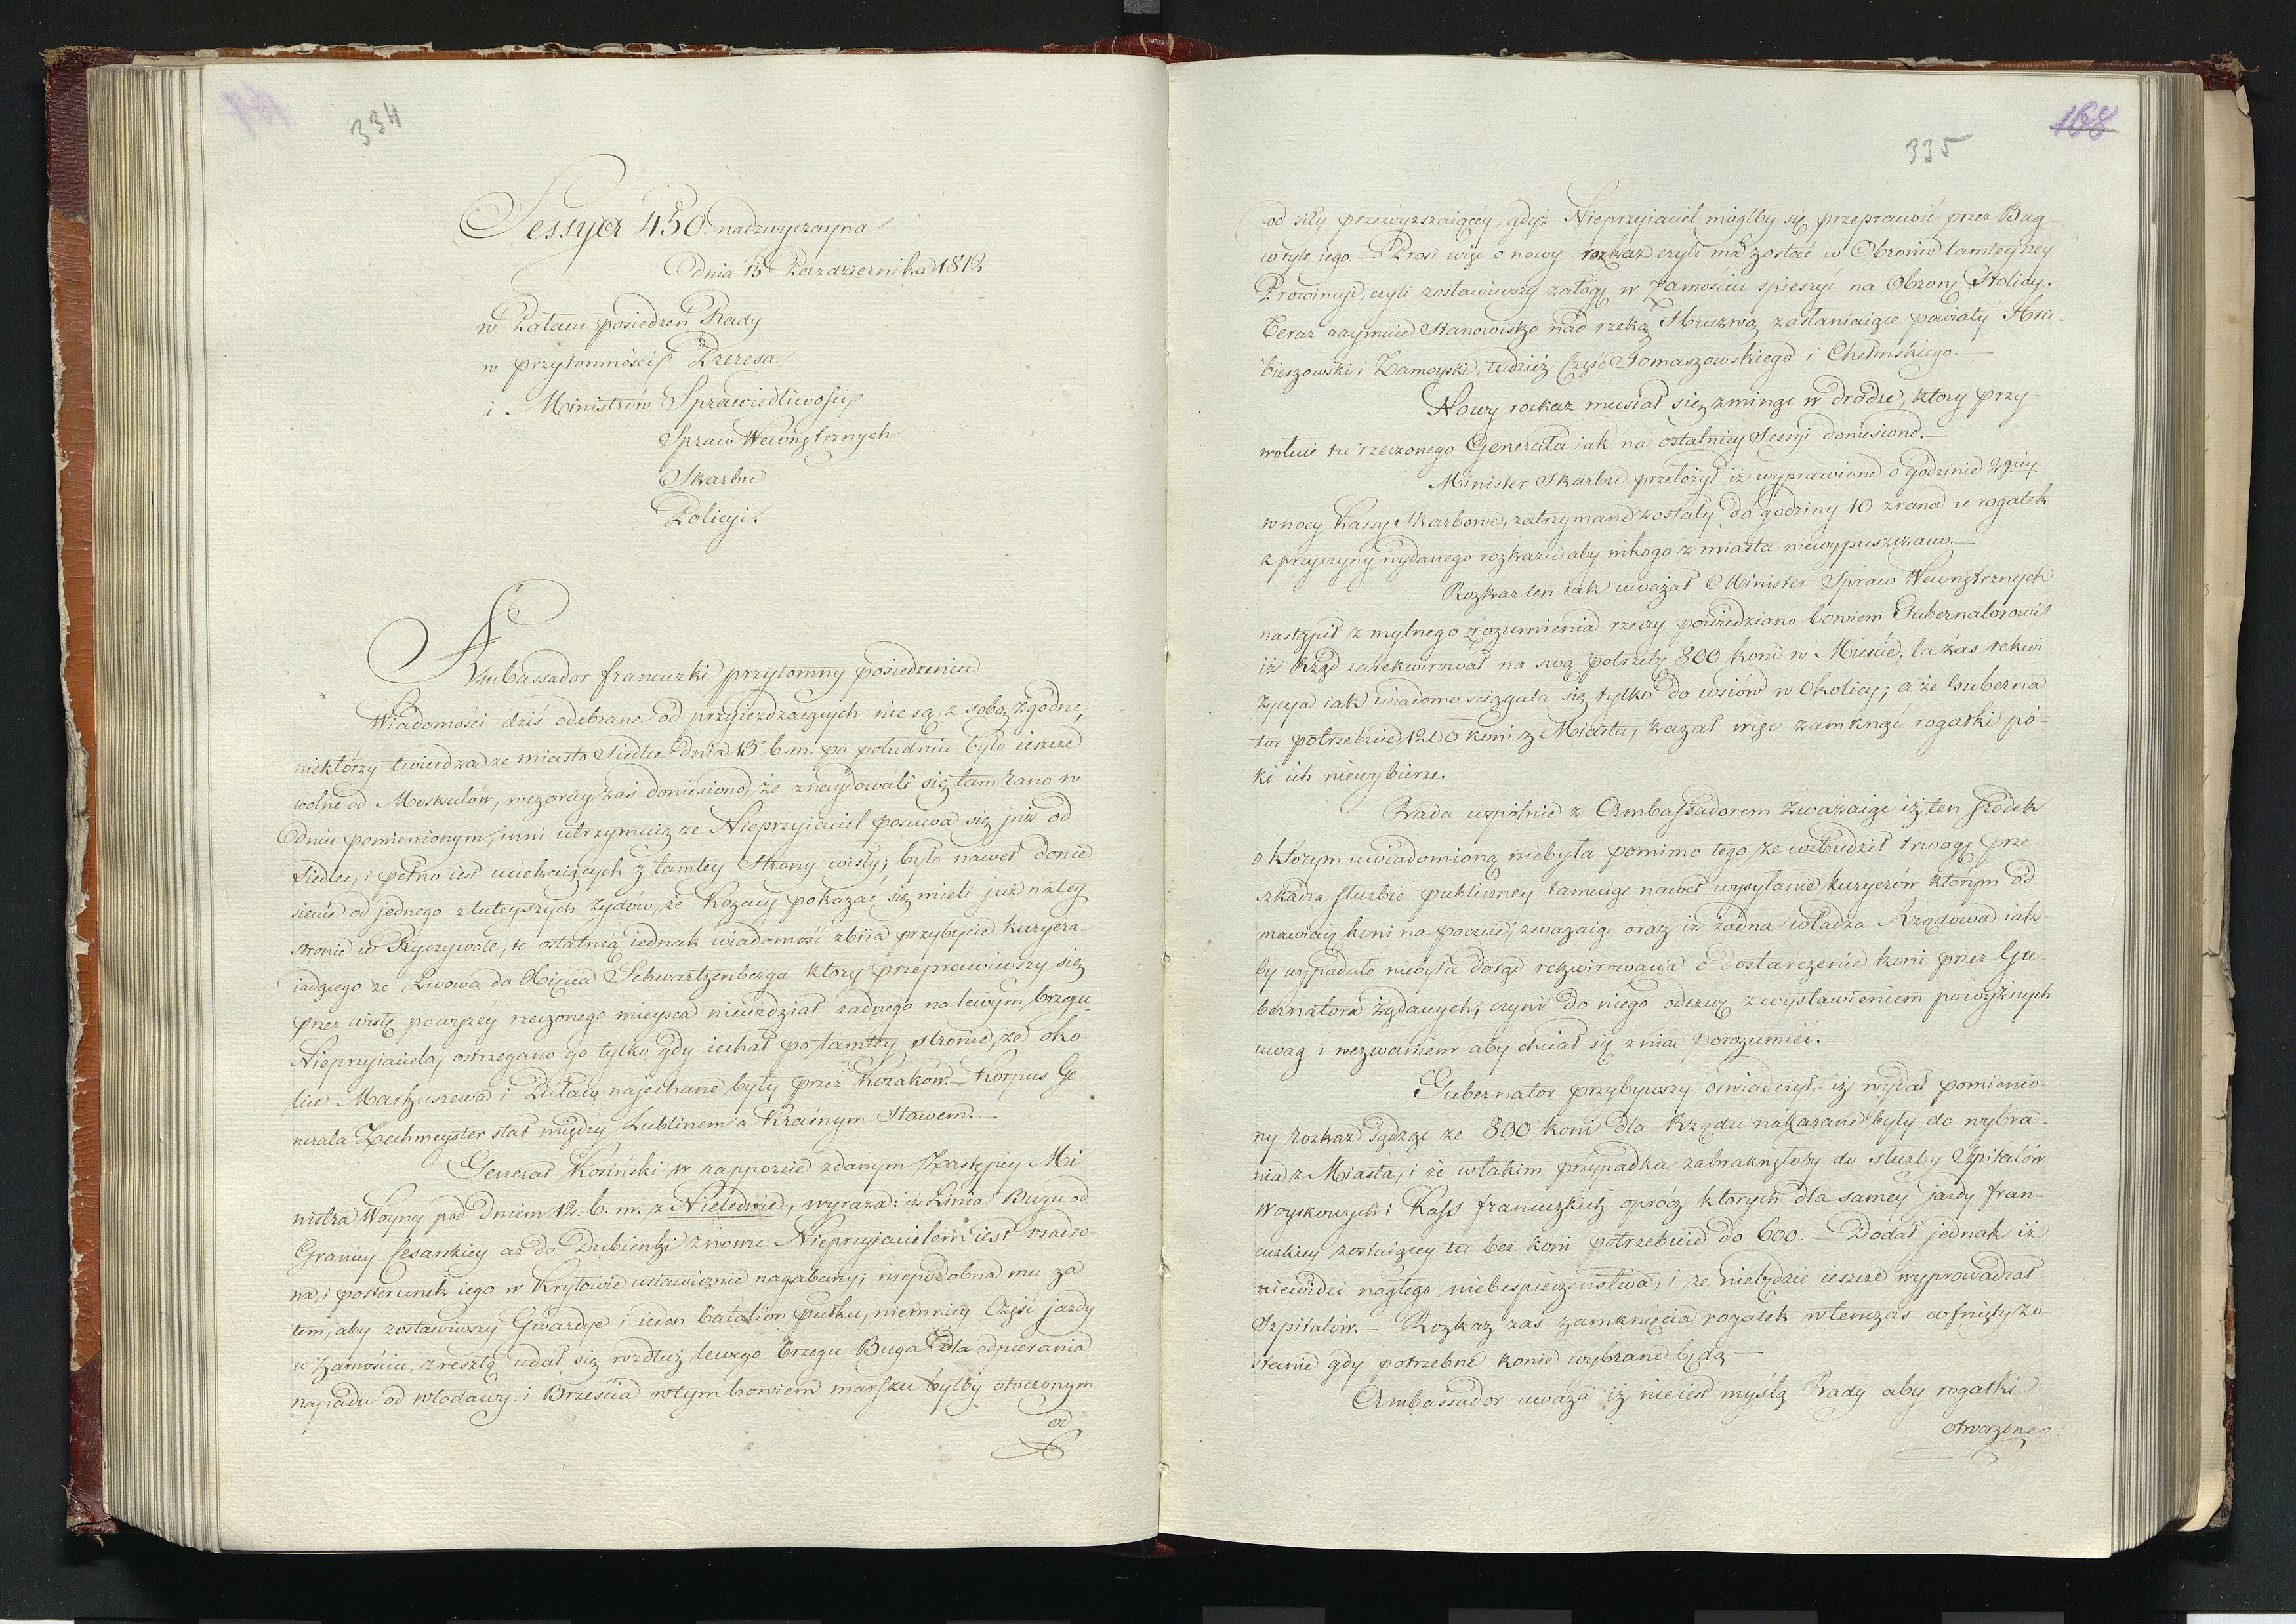 334
Sessya 450 nadzwyczayna
Dnia 15 Pazdziernika 1812
w Pałacu posiedzeń Rady
w przytomności Prezesa
i Ministrów Sprawiedliwości
Spraw Wewnętrznych
Skarbu
Policyi.
Ambassador francuzki przytomny posiedzeniu
Wiadomości dziś odebrane od przyieżdżaiących nie są z sobą zgodne,
niektórzy twierdzą ze miasto Siedlce dnia 13 b. m. po południu było ieszcze
wolne od Moskalów, wczoray zaś doniesiono, że znaydowali się tam rano w
dniu pomienionym, inni utrzymuią ze Nieprzyiaciel posuwa się już od
Siedlec, i pełno iest uciekaiących z tamtey strony wisły; było nawet donie
sienie od jednego z tuteyszych żydów, że Kozacy pokazać się mieli już na tey
stronie w Ryczywole, te ostatnią iednak wiadomość zbiia przybycie kuryera
iadącego ze Lwowa do Xięcia Schwartzenberga ktory przeprawiwszy się
przez wisłę powyżéy rzeczonego mieysca niewidział żadnego na lewym brzegu
Nieprzyiaciela, ostrzegano go tylko gdy iechał po tamtey stronie, że oko-
lice Markuszewa i Puław najechane były przez Kozaków. – Korpus Ge
nerała Zechmeyster stał między Lublinem a Kraśnym Stawem. –
Generał Kosiński w rapporcie zdanym Zastępcy Mi
nistra Woyny pod Dniem 12. b. m. z Nieledwie, wyraża: iż Linia Bugu od
Granicy Cesarskiey aż do Dubienki znowu Nieprzyiacielem iest osadzo
na, i posterunek iego w Kryłowie ustawicznie nagabany; niepodobna mu za
tem, aby zostawiwszy Gwardye i ieden batalion pułku, niemniey Część jazdy
w Zamościu, z resztą udał się wzdłuż lewego brzegu Buga dla odpierania
napadu od Włodawy i Brześcia w tym bowiem marszu byłby otoczonym
od
168
335
od siły przewyższaiącéy, gdyż Nieprzyiaciel mógłby się przeprawić przez Bug
w tyle iego. – Prosi więc o nowy rozkaz czyli ma zostać w Obronie tamteyszey
Prowincyi, czyli zostawiwszy załogę w Zamościu spieszyć na Obronę Stolicy.
Teraz zaymuie Stanowisko nad rzeką Huczwą zasłaniaiąc powiaty Hru-
bieszowski i Zamoyski, tudzież Część Tomaszowskiego i Chełmskiego. –
Nowy rozkaz musiał się zminąć w drodze, ktory przy-
wołuie tu rzeczonego Generała iak na ostatniey Sessyi doniesiono. –
Minister Skarbu przełożył iż wyprawione o godzinie 2giey
w nocy Kassy Skarbowe, zatrzymane zostały do godziny 10 zrana u rogatek
z przyczyny wydanego rozkazu aby nikogo z miasta niewypuszczano. –
Rozkaz ten iak uważał Minister Spraw Wewnętrznych
nastąpił z mylnego zrozumienia rzeczy powiedziano bowiem Gubernatorowi
iż Rząd zarekwirował na swą potrzebę 800 koni w Mieście, ta zaś rekwi
zycya iak wiadomo sciągała się tylko do wsiów w Okolicy; a że Guberna
tor potrzebuie 1200 koni z Miasta, kazał więc zamknąć rogatki pó-
ki ich niewybierze.
Rada wspólnie z Ambassadorem zważaiąc iż ten środek
o którym uwiadomioną niebyła pomimo tego ze wzbudził trwogę prze-
szkadza służbie publiczney tamuiąc nawet wysyłanie kuryerów którym od
mawiaią koni na poczcie; zważaiąc oraz iż żadna władza Rządowa iak
by wypadało niebyła dotąd rekwirowana o dostarczenie koni przez Gu-
bernatora żądanych, czyni do niego odezwę z wystawieniem powyższych
uwag i wezwaniem aby chciał się z nią porozumieć. –
Gubernator przybywszy oswiadczył, iż wydał pomienio-
ny rozkaz sądząc ze 800 koni dla Rządu nakazane były do wybra-
nia z Miasta, i że w takim przypadku zabraknęłoby do służby Szpitalów
Woyskowych i Kass francuzkich oprócz ktorych dla samey jazdy fran-
cuzkiey zostaiącey tu bez koni potrzebuie do 600. – Dodał jednak iż
niewidzi nagłego niebespieczeństwa, i ze niebędzie ieszcze wyprowadzał
Szpitalów. – Rozkaz zaś zamknięcia rogatek wtenczas cofnięty zo-
stanie gdy potrzebne konie wybrane będą –
Ambassador uważa iż nie iest myślą Rady aby rogatki
otworzone